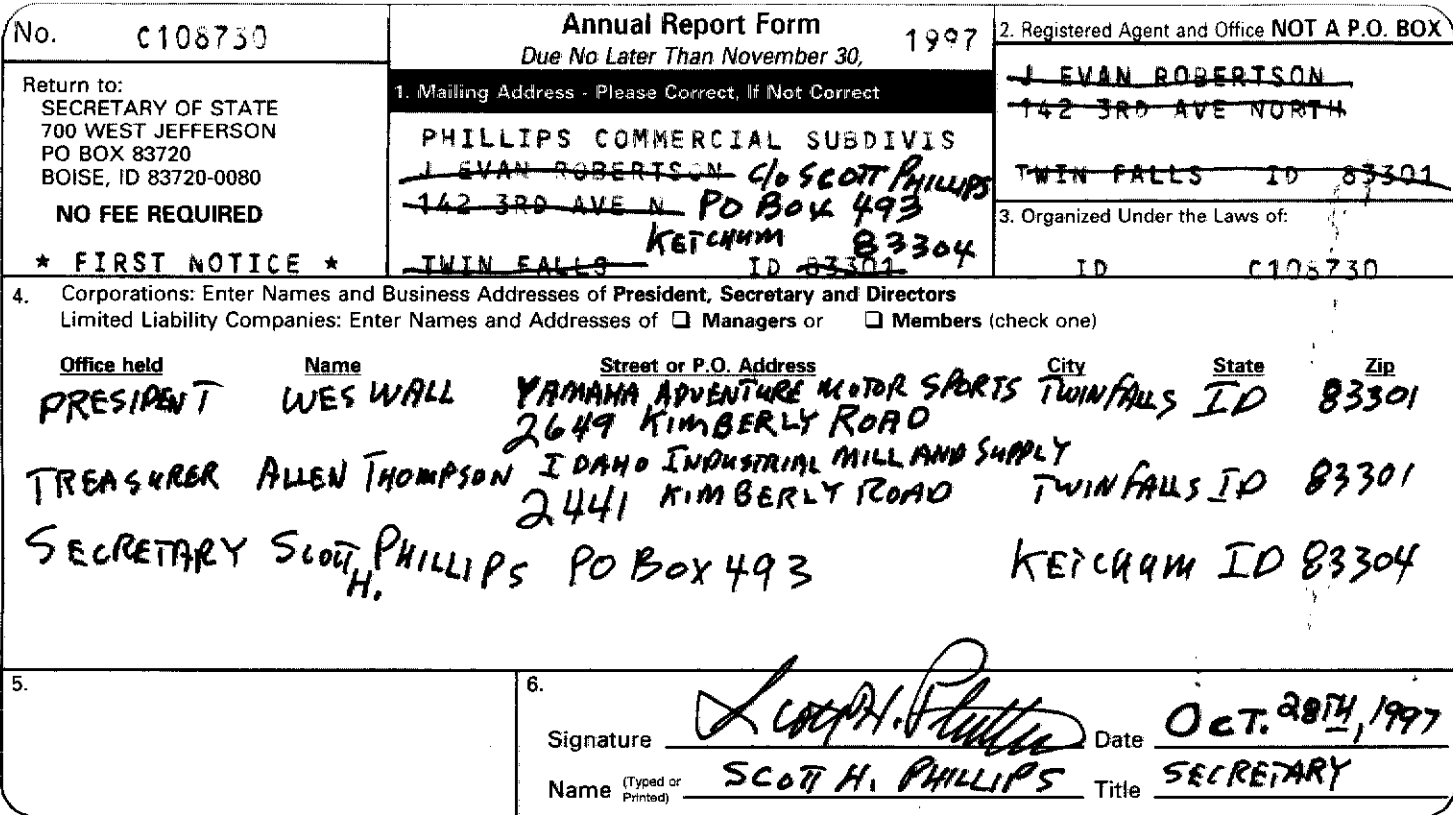 No. C108730
Annual Report Form 1997
Due No Later Than November 30,
Return to:
SECRETARY OF STATE
700 WEST JEFFERSON
PO BOX 83720
BOISE, ID 83720-0080
NO FEE REQUIRED
* FIRST NOTICE *
1. Mailing Address - Please Correct, If Not Correct
PHILLIPS COMMERCIAL SUBDIVIS
J EVAN ROBERTSON c/o SCOTT PHILLIPS
142 3RD AVE N PO BOX 493
KETCHUM 83304
TWIN FALLS ID 83301
2. Registered Agent and Office NOT A P.O. BOX
J EVAN ROBERTSON
142 3RD AVE NORTH
TWIN FALLS ID 83301
3. Organized Under the Laws of:
ID C108730
4. Corporations: Enter Names and Business Addresses of President, Secretary and Directors
Limited Liability Companies: Enter Names and Addresses of ☐ Managers or ☐ Members (check one)
Office held Name Street or P.O. Address City State Zip
PRESIDENT WES WALL YAMAHA ADVENTURE MOTOR SPORTS TWIN FALLS ID 83301
2649 KIMBERLY ROAD
TREASURER ALLEN THOMPSON IDAHO INDUSTRIAL MILL AND SUPPLY
2441 KIMBERLY ROAD TWIN FALLS ID 83301
SECRETARY SCOTT H. PHILLIPS PO BOX 493 KETCHUM ID 83304
5.
6.
Signature Scott H. Phillips Date OCT. 28TH, 1997
Name (Typed or Printed) SCOTT H. PHILLIPS Title SECRETARY